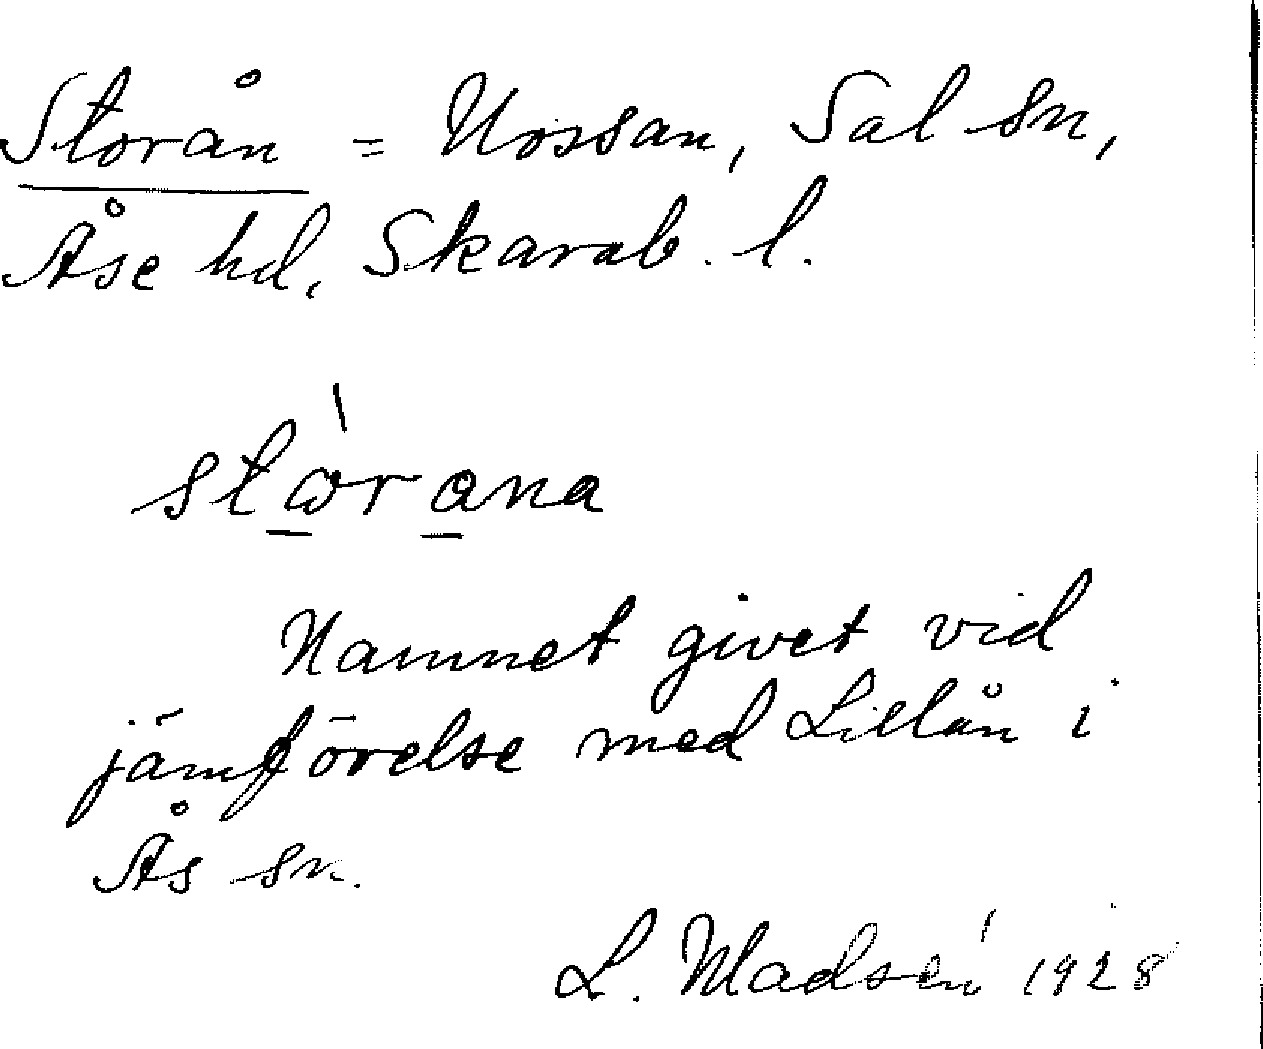 Storån = Nossan, Sal sn,
Åse hd, Skarab. l.
Namnet givet vid
jämförelse med Lillån i
Ås sn.
L. Madsén 1928